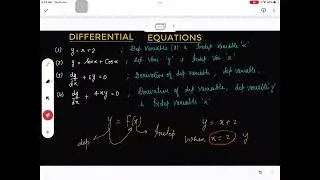 DIFFERENTIAL EQUATIONS
(1) y = x + 2 ; Dep Variable (y) & Indep Variable 'x'
(2) y = sin x + cos x ; Dep Var 'y' & Indep Var 'x'
(3) dy/dx + 6y = 0 ; Derivative of dep variable, dep variable
(4) dy/dx + 4xy = 0 ; Derivative of dep variable, dep variable 'y' & Indep variable 'x'
y = f(x)
dep
Indep
y = x + 2
when x = 2, y